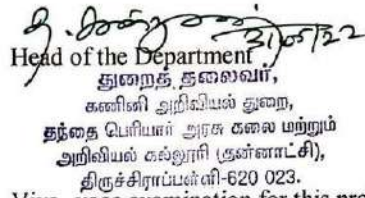 31/05/22
Head of the Department
துறைத் தலைவர்,
கணினி அறிவியல் துறை,
தந்தை பெரியார் அரசு கலை மற்றும்
அறிவியல் கல்லூரி (தன்னாட்சி),
திருச்சிராப்பள்ளி-620 023.
examination for this